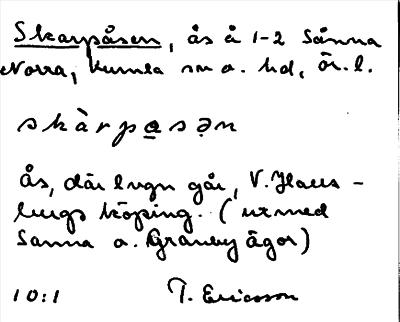 Skarpåsen, ås å 1-2 Sånna
Norra, Kumla sn o. hd, Ör. l.
skàrpa̲sə̣n
ås, där lvgn går, V. Hallsbergs köping. (utmed
Sanna o. Granby ägor)
10:1 T. Ericsson